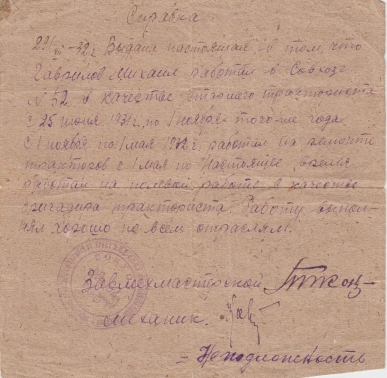 Справка
Выдана настоящая в том, что
Гаврилов Михаил работал в Совхозе
№ 52 в качестве старшего тракториста
с 25 июня 1931 г. по 1 ноября того-же года
с 1 ноября по 1 мая 1932 г. работал на ремонте
тракторов с 1 мая по настоящее время
работал на полевой работе в качестве
бригадира тракториста. Работу выпол-
нял хорошо по всем отраслям.
Завмехмастерской
Механик.